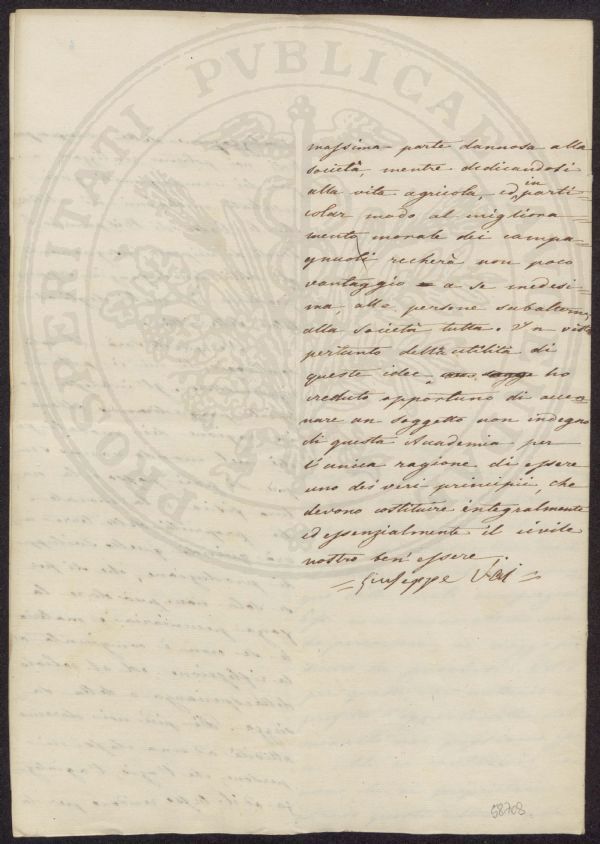 PROSPERITATI PVBLICAE
massima parte dannosa alla
società mentre dedicandosi
alla vita agricola, ed in parti=
colar modo al migliora=
mento morale dei campa=
gnuoli recherà non poco
vantaggio a se medesi=
ma, alle persone subalterne,
alla società tutta. In vista
pertanto della utilità di
queste idee ho
creduto opportuno di accen
nare un soggetto non indegno
di questa Academia per
l'unica ragione di essere
uno dei veri principii, che
devono costituire integralmente
ed essenzialmente il civile
nostro ben' essere.
= Giuseppe Vai =
58708